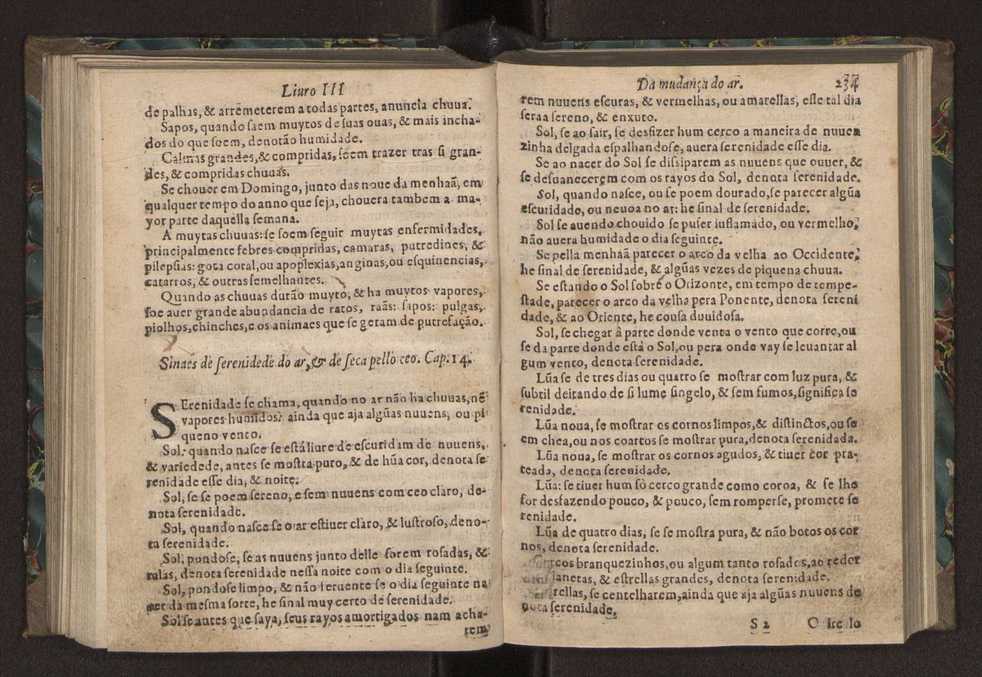 Liuro III
de palhas, & arrẽmeterem a todas partes, anuncia chuua.
Sapos, quando saem muytos de suas ouas, & mais incha-
dos do que soem, denotão humidade.
Calmas grandes, & compridas, soem trazer tras si gran-
des, & compridas chuuas.
Se chouer em Domingo, junto das noue da menhaã, em
qualquer tempo do anno que seja, chouera tambem a ma-
yor parte daquella semana.
A muytas chuuas: se soem seguir muytas enfermidades,
principalmente febres compridas, camaras, putredines, &
pilepsias: gota coral, ou apoplexias, anginas, ou esquinencias,
catarros, & outras semelhantes.
Quando as chuuas durão muyto, & ha muytos vapores,
soe auer grande abundancia de ratos, raãs: sapos: pulgas,
piolhos, chinches, e os animaes que se geram de putrefação.
Sinaes de serenidede do ar, & de seca pello ceo. Cap: 14.
SErenidade se chama, quando no ar não ha chuuas, nẽ
vapores humidos: ainda que aja algũas nuuens, ou pi
queno vento.
Sol: quando nasce se está liure de escuridam de nuuens,
& variedede, antes se mostra puro, & de hũa cor, denota se-
renidade esse dia, & noite.
Sol, se se poem sereno, e sem nuuens com ceo claro, de-
nota serenidade.
Sol, quando nasce se o ar estiuer claro, & lustroso, deno-
ta serenidade.
Sol, pondose, se as nuuens junto delle forem rosadas, &
ralas, denota serenidade nessa noite com o dia seguinte.
Sol, pondose limpo, & não feruente se o dia seguinte na
cer da mesma sorte, he sinal muy certo de serenidade.
Sol se antes que saya, seus rayos amortigados nam acha-
rem
Da mudança do ar. 234
rem nuuens escuras, & vermelhas, ou amarellas, esse tal dia
sera a sereno, & enxuto.
Sol, se ao sair, se desfizer hum cerco a maneira de nuuen
zinha delgada espalhandose, auera serenidade esse dia.
Se ao nacer do Sol se dissiparem as nuuens que ouuer, &
se desuanecerem com os rayos do Sol, denota serenidade.
Sol, quando nasce, ou se poem dourado, se parecer algũa
escuridade, ou neuoa no ar: he sinal de serenidade.
Sol se auendo chouido se puser inflamado, ou vermelho,
não auera humidade o dia seguinte.
Se pella menhaã parecer o arco da velha ao Occidente,
he sinal de serenidade, & algũas vezes de piquena chuua.
Se estando o Sol sobre o Orizonte, em tempo de tempe-
stade, parecer o arco da velha pera Ponente, denota sereni
dade, & ao Oriente, he cousa duuidosa.
Sol, se chegar â parte donde venta o vento que corre, ou
se da parte donde está o Sol, ou pera onde vay se leuantar al
gum vento, denota serenidade.
Lũa se de tres dias ou quatro se mostrar com luz pura, &
subtil deitando de si lume singelo, & sem fumos, significa se
renidade.
Lũa noua, se mostrar os cornos limpos, & distinctos, ou se
em chea, ou nos coartos se mostrar pura, denota serenidada.
Lũa noua, se mostrar os cornos agudos, & tiuer cor pra-
teada, denota serenidade.
Lũa: se tiuer hum sò cerco grande como coroa, & se lhe
for desfazendo pouco, & pouco, sem romperse, promete se
renidade.
Lũa de quatro dias, se se mostra pura, & não botos os cor
nos, denota serenidade.
branquezinhos, ou algum tanto rosados, ao redor
& estrellas grandes, denota serenidade.
se centelharem, ainda que aja algũas nuuens de
nota serenidade.
S 2